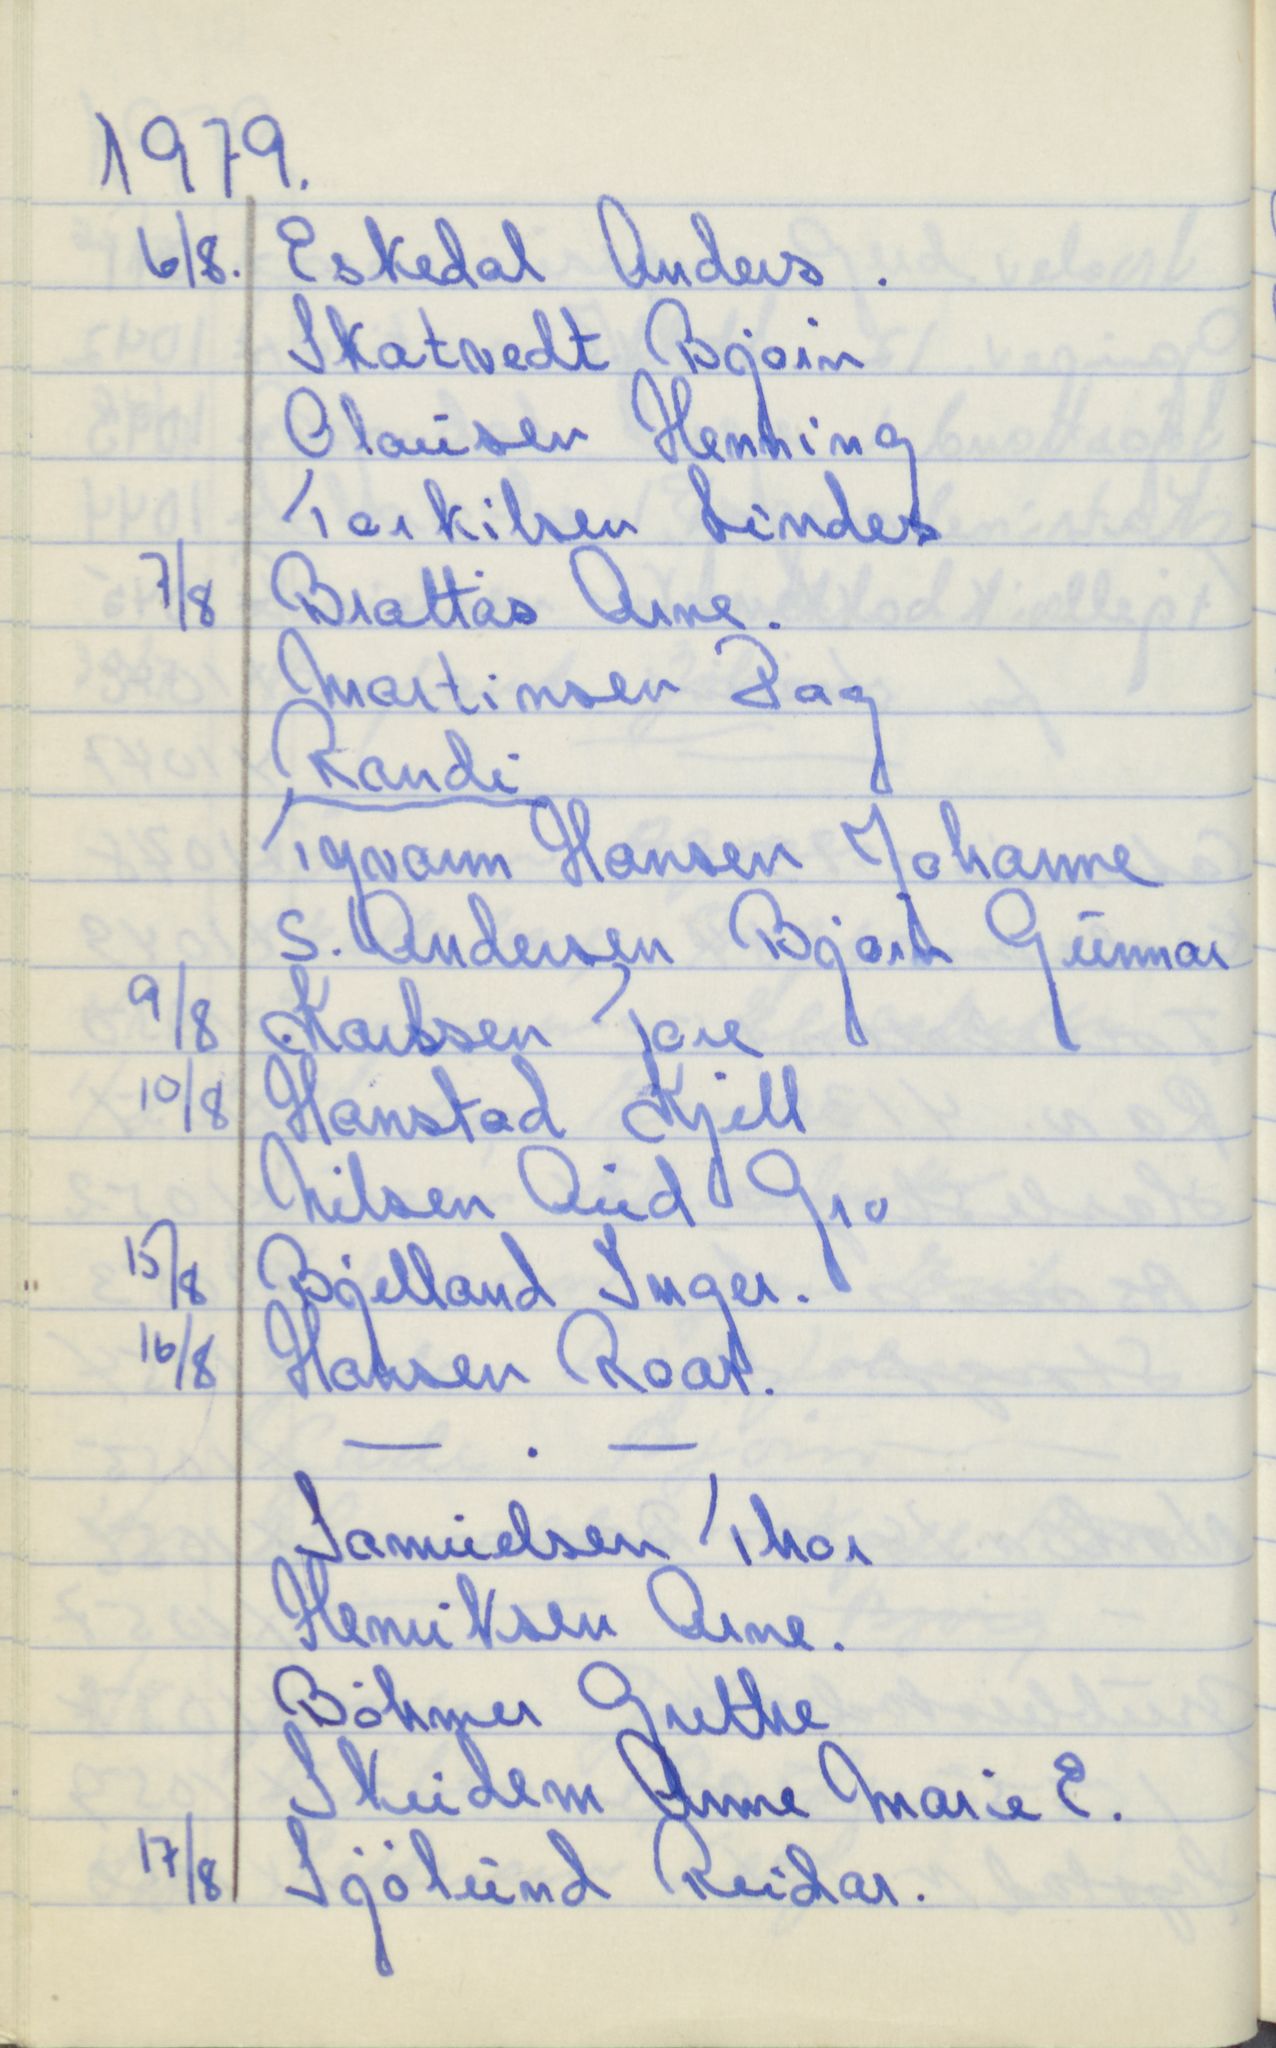 1979.
6/8. Eskedal Anders.
Skatvedt Bjørn
Clausen Henning
Torkilsen Lindes
7/8 Brattås Arne.
Martinsen Dag
Randi
Hansen Johanne
S. Andersen Bjørn Gunnar
9/8 Karlsen Tore
10/8 Hanstad Kjell
Nilsen Aud Gro
15/8 Bjelland Inger.
16/8 Hansen Roar.
— . —
Samuelsen Thor
Henriksen Arne.
Böhmer Grethe
Skeidem Anne Marie E.
17/8 Sjölund Reidar.